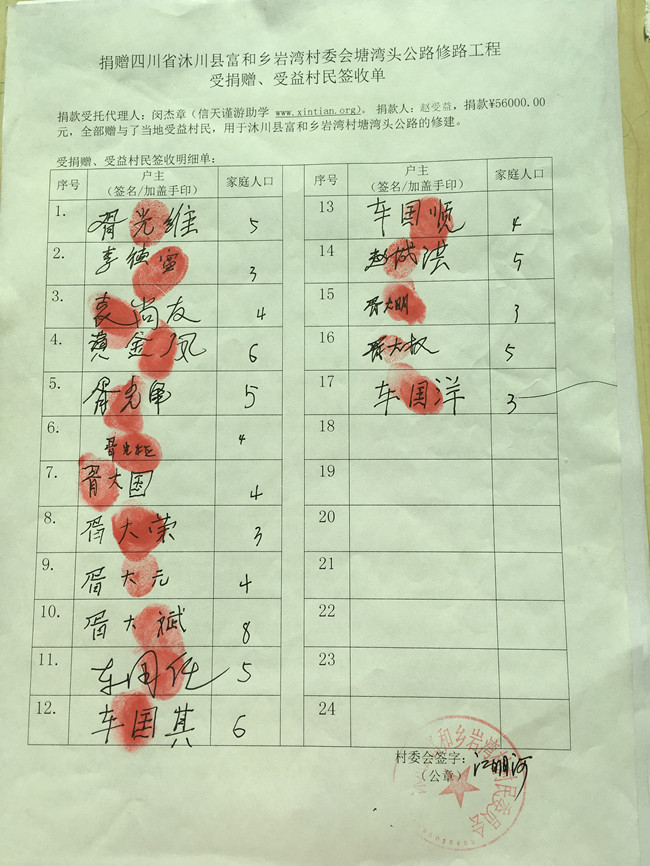 捐赠四川省沐川县富和乡岩湾村委会塘湾头公路修路工程
受捐赠、受益村民签收单
捐款受托代理人：闵杰章（信天谨游助学 www.xintian.org)。捐款人：赵受益，捐款¥56000.00
元，全部赠与了当地受益村民，用于沐川县富和乡岩湾村塘湾头公路的修建。
受捐赠、受益村民签收明细单：
序号 户主（签名/加盖手印） 家庭人口 序号 户主（签名/加盖手印） 家庭人口
1. 胥光维 5 13 车国顺 4
2. 李德 3 14 赵成洪 5
3. 袁尚友 4 15 胥大明 3
4. 黄金凤 6 16 胥大权 5
5. 胥光军 5 17 车国洋 3
6. 胥光 4 18
7. 胥大国 4 19
8. 胥大荣 3 20
9. 胥大元 4 21
10. 胥大斌 8 22
11. 车国 5 23
12. 车国其 6 24
村委会签字：江明河
（公章）
和乡岩湾村村民委员会